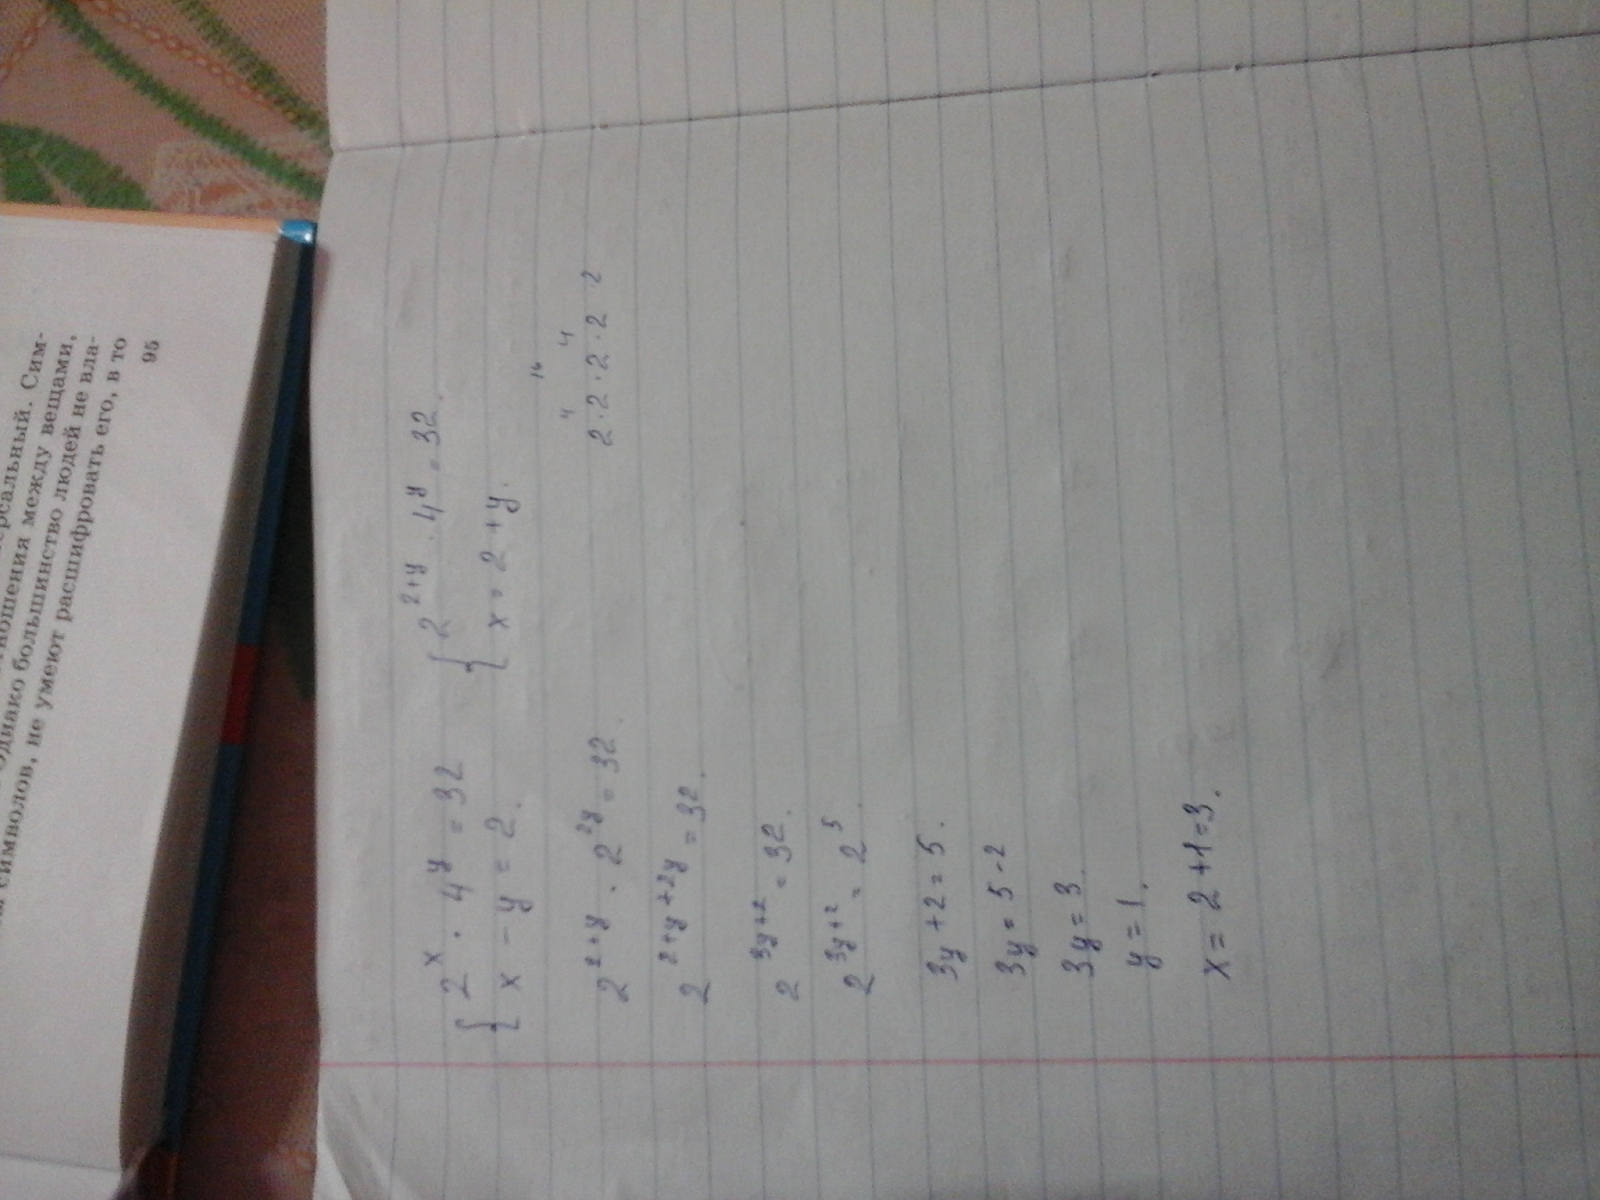 ерсальный. Сим-
тношения между вещами,
однако большинство людей не вла-
символов, не умеют расшифровать его, в то
95
{ 2^x · 4^y = 32
x - y = 2.
{ 2^{2+y} · 4^y = 32.
x = 2 + y.
16
4 4
2 · 2 · 2 · 2 · 2
2^{2+y} · 2^{2y} = 32.
2^{2+y+2y} = 32.
2^{3y+2} = 32.
2^{3y+2} = 2^5.
3y + 2 = 5.
3y = 5 - 2
3y = 3.
y = 1.
x = 2 + 1 = 3.